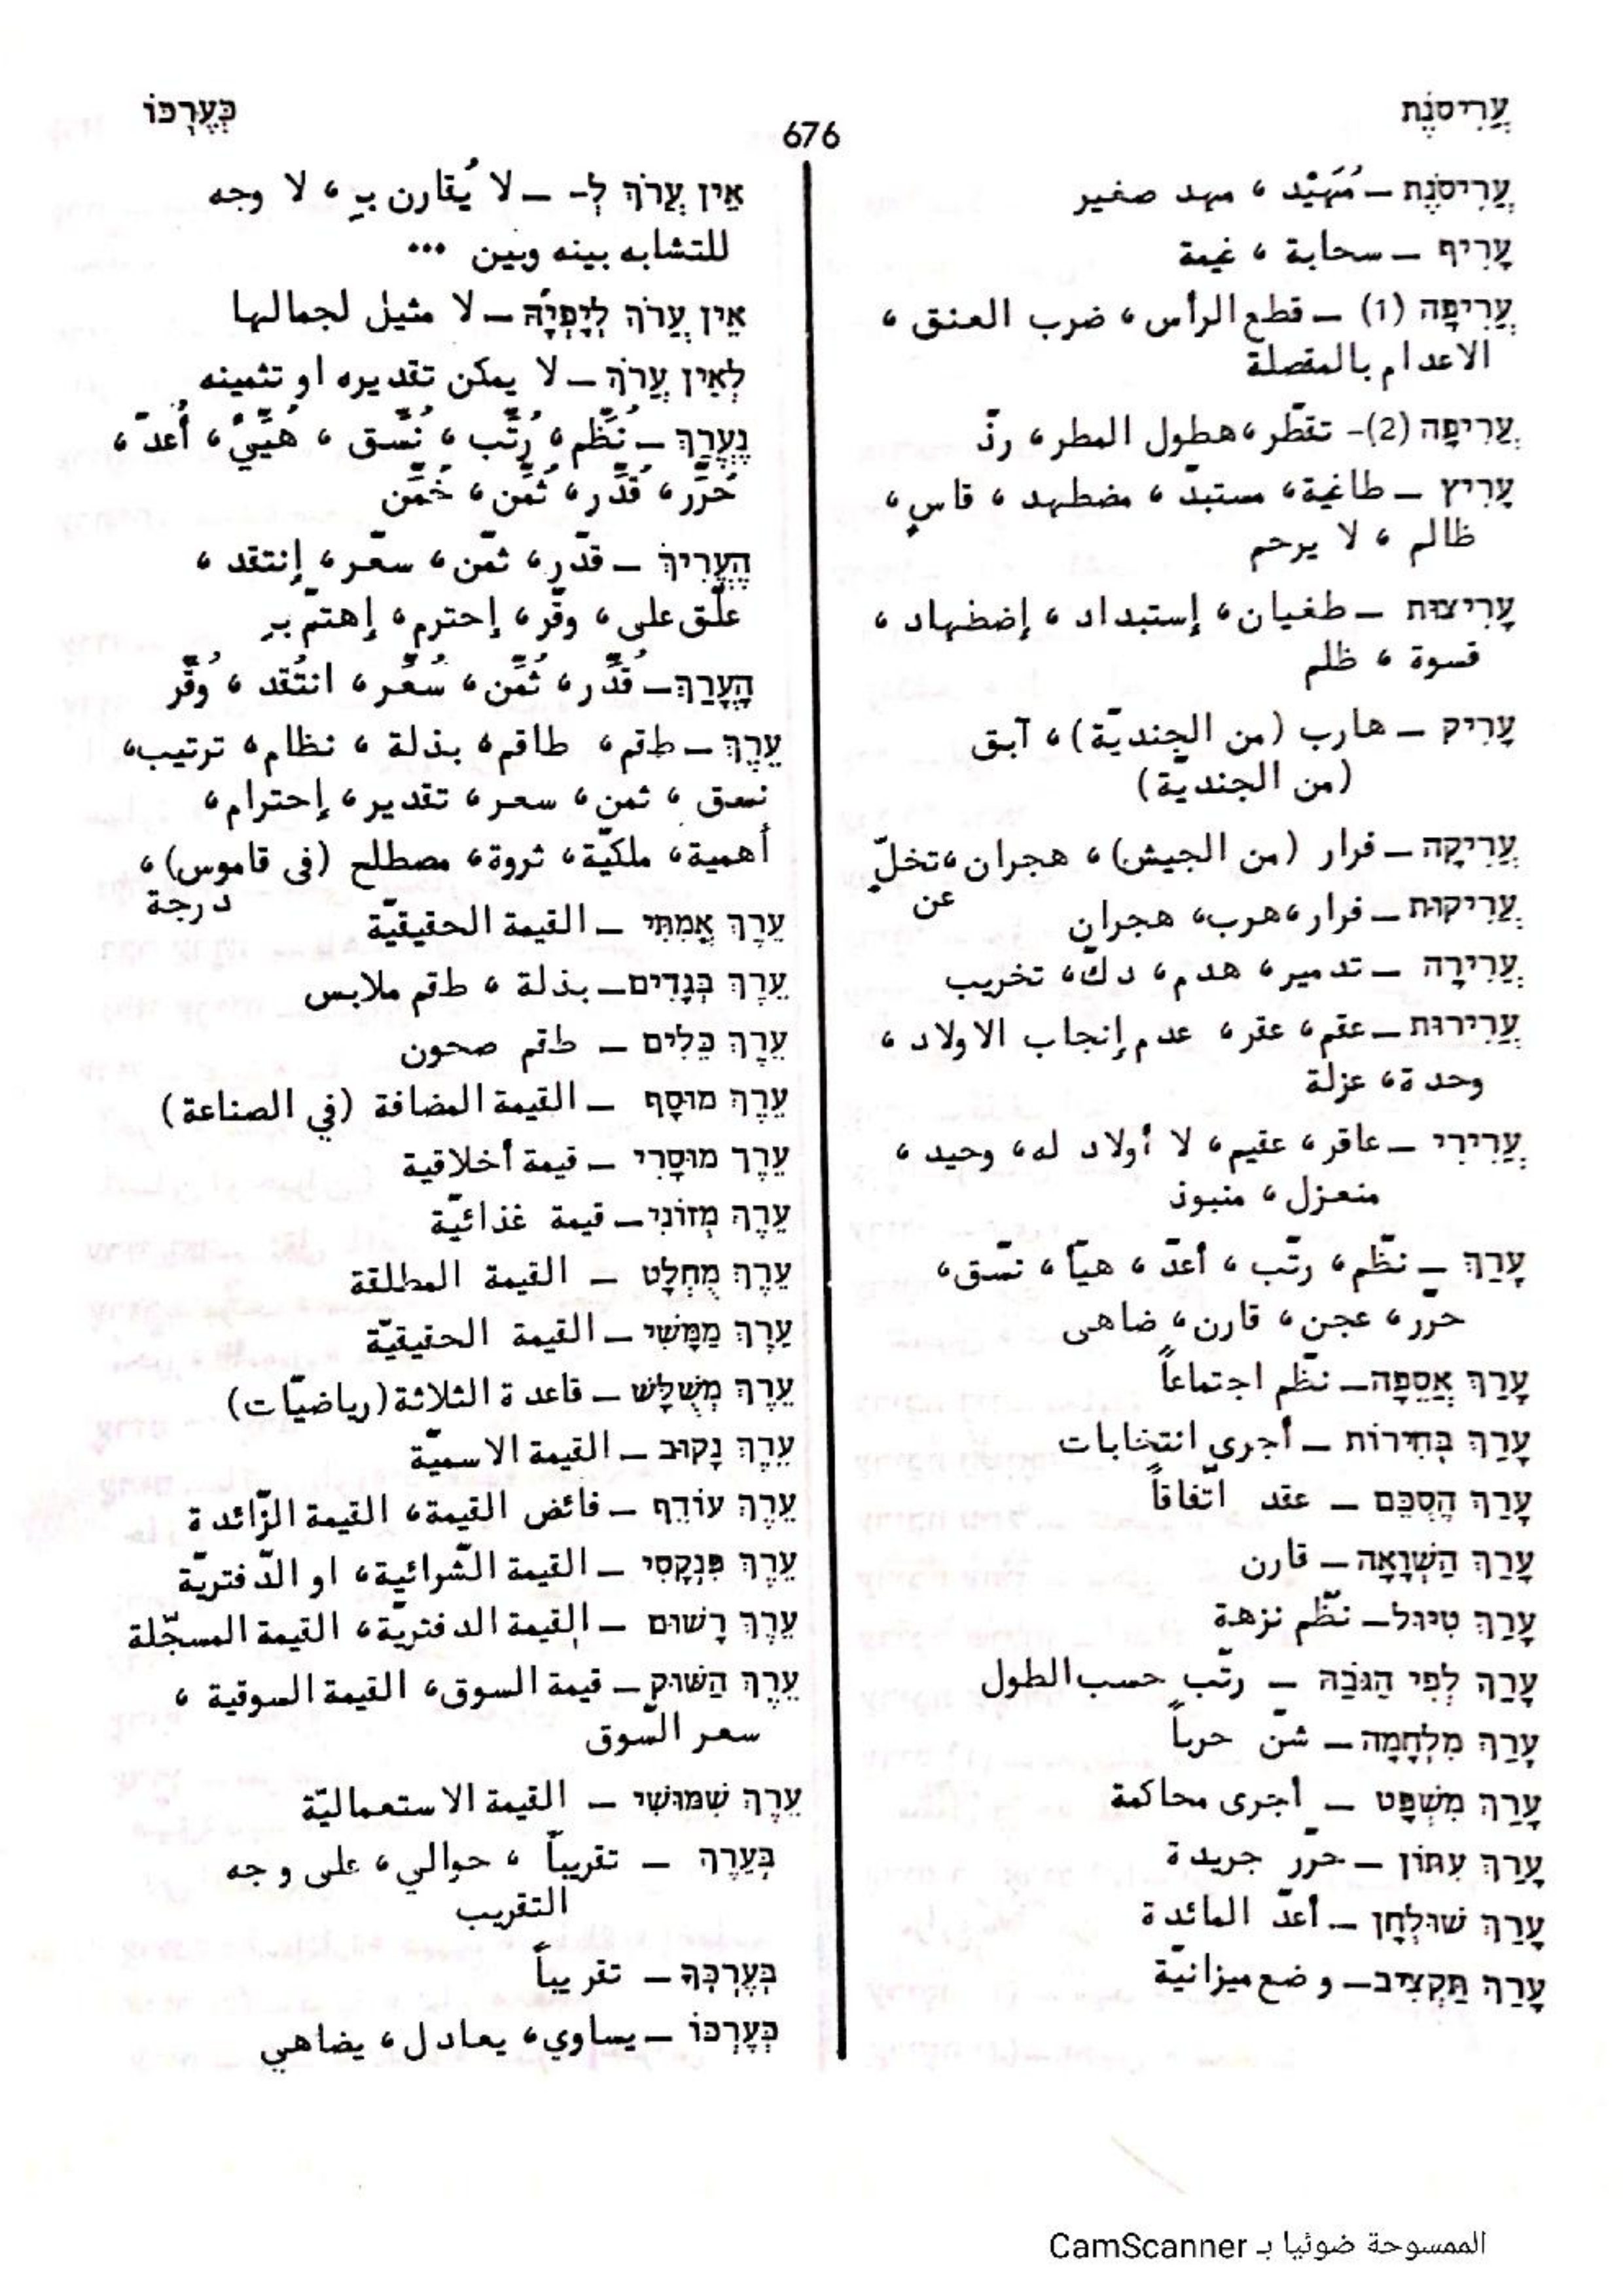 עֲרִיסֹנֶת
676
כְּעֶרְכּוֹ
עֲרִיסֹנֶת – مُهَيْد ، مهد صغير
עָרִיף – سحابة ، غيمة
עֲרִיפָה (1) – قطع الرأس ، ضرب العنق ،
الاعدام بالمقصلة
עֲרִיפָה (2)- تقطّر ، هطول المطر ، رذّ
עָרִיץ – طاغية ، مستبدّ ، مضطهد ، قاسٍ ،
ظالم ، لا يرحم
עָרִיצוּת – طغيان ، إستبداد ، إضطهاد ،
قسوة ، ظلم
עָרִיק – هارب (من الجنديّة) ، آبق
(من الجنديّة)
עֲרִיקָה – فرار (من الجيش) ، هجران ، تخلّ
عن
עֲרִיקוּת – فرار ، هرب ، هجران
עֲרִירָה – تدمير ، هدم ، دكّ ، تخريب
עֲרִירוּת – عقم ، عقر ، عدم إنجاب الاولاد ،
وحدة ، عزلة
עֲרִירִי – عاقر ، عقيم ، لا أولاد له ، وحيد ،
منعزل ، منبوذ
עָרַךְ – نظّم ، رتّب ، أعدّ ، هيّأ ، نسّق ،
حرّر ، عجن ، قارن ، ضاهى
עָרַךְ אֲסֵפָה – نظّم اجتماعاً
עָרַךְ בְּחִירוֹת – أجرى انتخابات
עָרַךְ הֶסְכֵּם – عقد اتّفاقاً
עָרַךְ הַשְׁוָאָה – قارن
עָרַךְ טִיּוּל – نظّم نزهة
עָרַךְ לְפִי הַגֹּבַהּ – رتّب حسب الطول
עָרַךְ מִלְחָמָה – شنّ حرباً
עָרַךְ מִשְׁפָּט – أجرى محاكمة
עָרַךְ עִתּוֹן – حرّر جريدة
עָרַךְ שׁוּלְחָן – أعدّ المائدة
עָרַךְ תַּקְצִיב – وضع ميزانيّة
אֵין עֲרֹךְ לְ- – لا يُقارن بـِ ، لا وجه
للتشابه بينه وبين ...
אֵין עֲרֹךְ לְיָפְיָהּ – لا مثيل لجمالها
לְאֵין עֲרֹךְ – لا يمكن تقديره او تثمينه
נֶעֱרַךְ – نُظِّم ، رُتِّب ، نُسِّق ، هُيِّئَ ، أُعدّ ،
حُرِّر ، قُدِّر ، ثُمِّن ، خُمِّن
הֶעֱרִיךְ – قدّر ، ثمّن ، سعّر ، إنتقد ،
علّق على ، وقّر ، إحترم ، إهتمّ بـِ
הָעֳרַךְ – قُدِّر ، ثُمِّن ، سُعِّر ، انتُقد ، وُقِّر
עֵרֶךְ – طقم ، طاقم ، بذلة ، نظام ، ترتيب ،
نسق ، ثمن ، سعر ، تقدير ، إحترام ،
أهمية ، ملكيّة ، ثروة ، مصطلح (في قاموس) ،
درجة
עֵרֶךְ אֲמִתִּי – القيمة الحقيقيّة
עֵרֶךְ בְּגָדִים – بذلة ، طقم ملابس
עֵרֶךְ כֵּלִים – طقم صحون
עֵרֶךְ מוּסָף – القيمة المضافة (في الصناعة)
עֵרֶךְ מוּסָרִי – قيمة أخلاقية
עֵרֶךְ מְזוֹנִי – قيمة غذائيّة
עֵרֶךְ מֻחְלָט – القيمة المطلقة
עֵרֶךְ מַמָּשִׁי – القيمة الحقيقيّة
עֵרֶךְ מְשֻׁלָּשׁ – قاعدة الثلاثة (رياضيّات)
עֵרֶךְ נָקוּב – القيمة الاسميّة
עֵרֶךְ עוֹדֵף – فائض القيمة ، القيمة الزّائدة
עֵרֶךְ פִּנְקָסִי – القيمة الشّرائية ، او الدّفتريّة
עֵרֶךְ רָשׁוּם – القيمة الدفتريّة ، القيمة المسجّلة
עֵרֶךְ הַשּׁוּק – قيمة السوق ، القيمة السوقية ،
سعر السّوق
עֵרֶךְ שִׁמּוּשִׁי – القيمة الاستعماليّة
בְּעֵרֶךְ – تقريباً ، حوالي ، على وجه
التقريب
בְּעֶרְכְּךָ – تقريباً
כְּעֶרְכּוֹ – يساوي ، يعادل ، يضاهي
الممسوحة ضوئيا بـ CamScanner